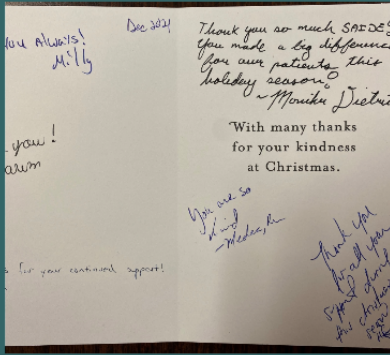 Dec 2021
you Always!
Milly
you!
for your continued support!
Thank you so much SAIDE'S
You made a big difference
for our patients this
holiday season!
~ Monika
With many thanks
for your kindness
at Christmas.
You are so
kind
Thank you
for all your
support during
this christmas